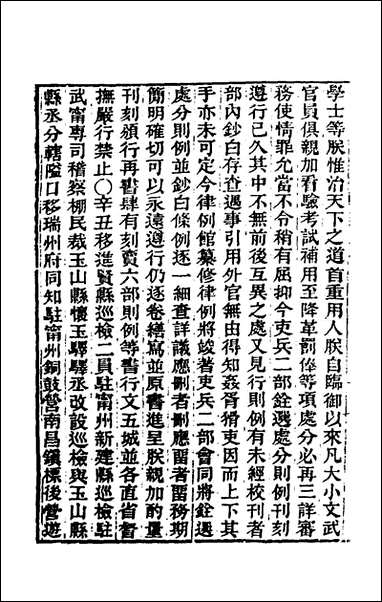 學士等朕惟治天下之道首重用人朕自臨御以來凡大小文武
官員俱親加看驗考試補用至降革罰俸等項處分必再三詳審
務使情罪允當不令稍有屈抑今吏兵二部銓選處分則例刊刻
遵行已久其中不無前後互異之處又見行則例有未經校刊者
部內鈔白存查遇事引用外官無由得知姦胥猾吏因而上下其
手亦未可定今律例館纂修律例將竣著吏兵二部會同將銓選
處分則例並鈔白條例逐一細查詳議應刪者刪應畱者畱務期
簡明確切可以永遠遵行仍逐卷繕寫並原書進呈朕親加酌量
刊刻頒行再書肆有刻賣六部則例等書行文五城並各直省督
撫嚴行禁止〇辛丑移進賢縣巡檢二員駐甯州新建縣巡檢駐
武甯專司稽察棚民裁玉山縣懷玉驛驛丞改設巡檢與玉山縣
縣丞分轄隘口移瑞州府同知駐甯州銅鼓營南昌鎮標後營遊